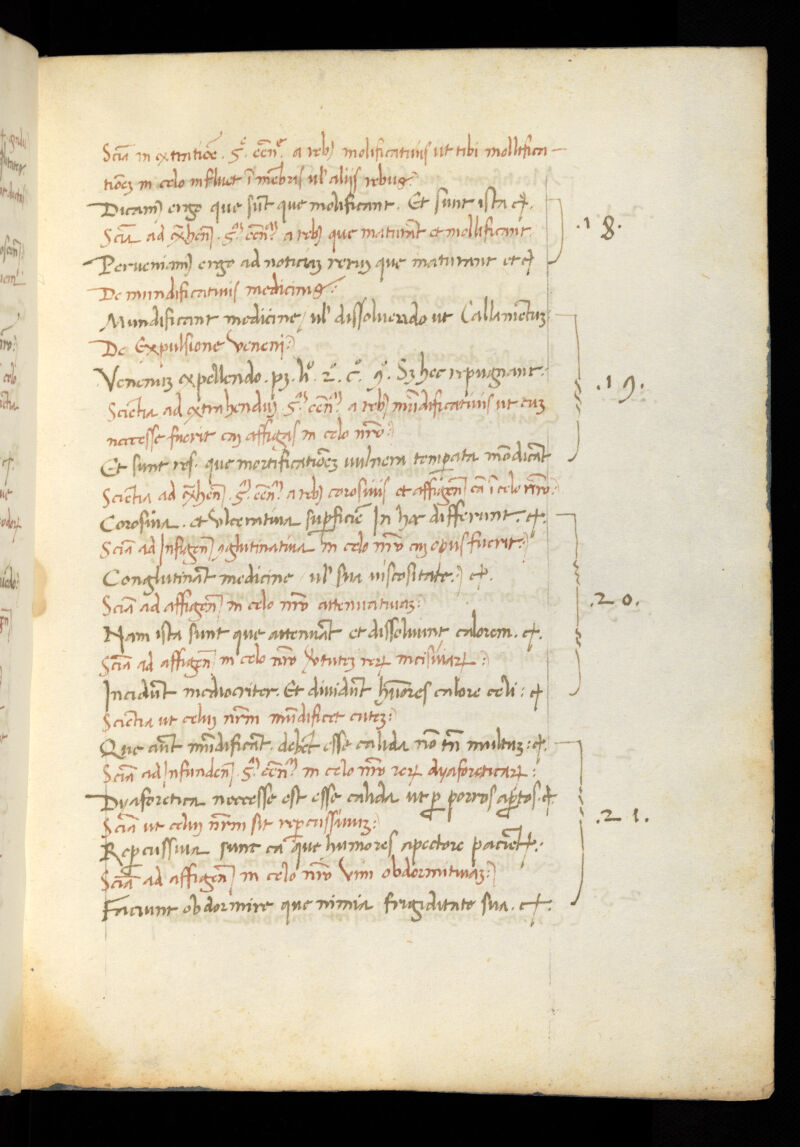 Sciã in extratiõe. 5ᵉ. eẽn̄ᵉ. a reb⁊ molificatiuis ut tibi mollifica
tiõeȝ in celo influet ĩ mẽbris ul' alijs rebus:
Dicam⁊ ergo que sũt que molificant. Et sunt ista et̃.
Sciã ad ex̃hen̄. a reb⁊ que maturãt et mollificant
Perueniam⁊ ergo ad noticiaȝ reruȝ que maturant et et̃
De mundificatiuis medicinis:
Mundificant medicine / ul' dissoluendo ut Callamẽtuȝ
De Expulsione Veneni:
Venenuȝ expellendo. Sȝ hec repugnant.
Scientia ad extrahenduȝ a reb⁊ mũdificatiuis ut cuȝ
necesse fuerit eaȝ affigas in celo nr̃o:
Et sunt res. que mortificatiõeȝ uulnera temꝑata mõdicãt
Scientia ad ex̃hen̄. a reb⁊ corosiuis et affigen̄ eã ĩ celo nr̃o:
Corosiua. et Vlceratiua suꝑficiẽ In hac differunt. et̃.
Sciã ad Infigen̄ ꝯglutinatiua in celo nr̃o cuȝ opus fuerit:
Conglutinãt medicine / ul' sua uiscositate:) et̃.
Sciã ad affigen̄ in celo nr̃o attenuatiuaȝ:
Nam ista sunt que attenuãt et dissoluunt calorem. et̃.
Sciã ad affigen̄ in celo nr̃o Virtuteȝ reꝝ incisiuaꝝ:
Incidũt mediocriter. Et diuidũt hũores calore celi: et̃
Scientia ut celuȝ nr̃m mũdificet cuteȝ:
Que aũt mũdificãt. debẽt esse calida nõ tñ multuȝ: et̃.
Sciã ad Infunden̄ in celo nr̃o reꝝ dyaforeticaꝝ:
Dyaforetica necesse est esse calida ut ꝑ porros aꝑtos. et̃
Sciã ut celuȝ nr̃m sit reꝑcussiuuȝ:
Reꝑcussiua sunt ea que humores apectore paciẽt et̃.
Sciã ad affigen̄ in celo nr̃o Vim obdormitiuaȝ:
Faciunt obdormire que nimia frigiditate sua. et̃.
.18.
.19.
.20.
.21.